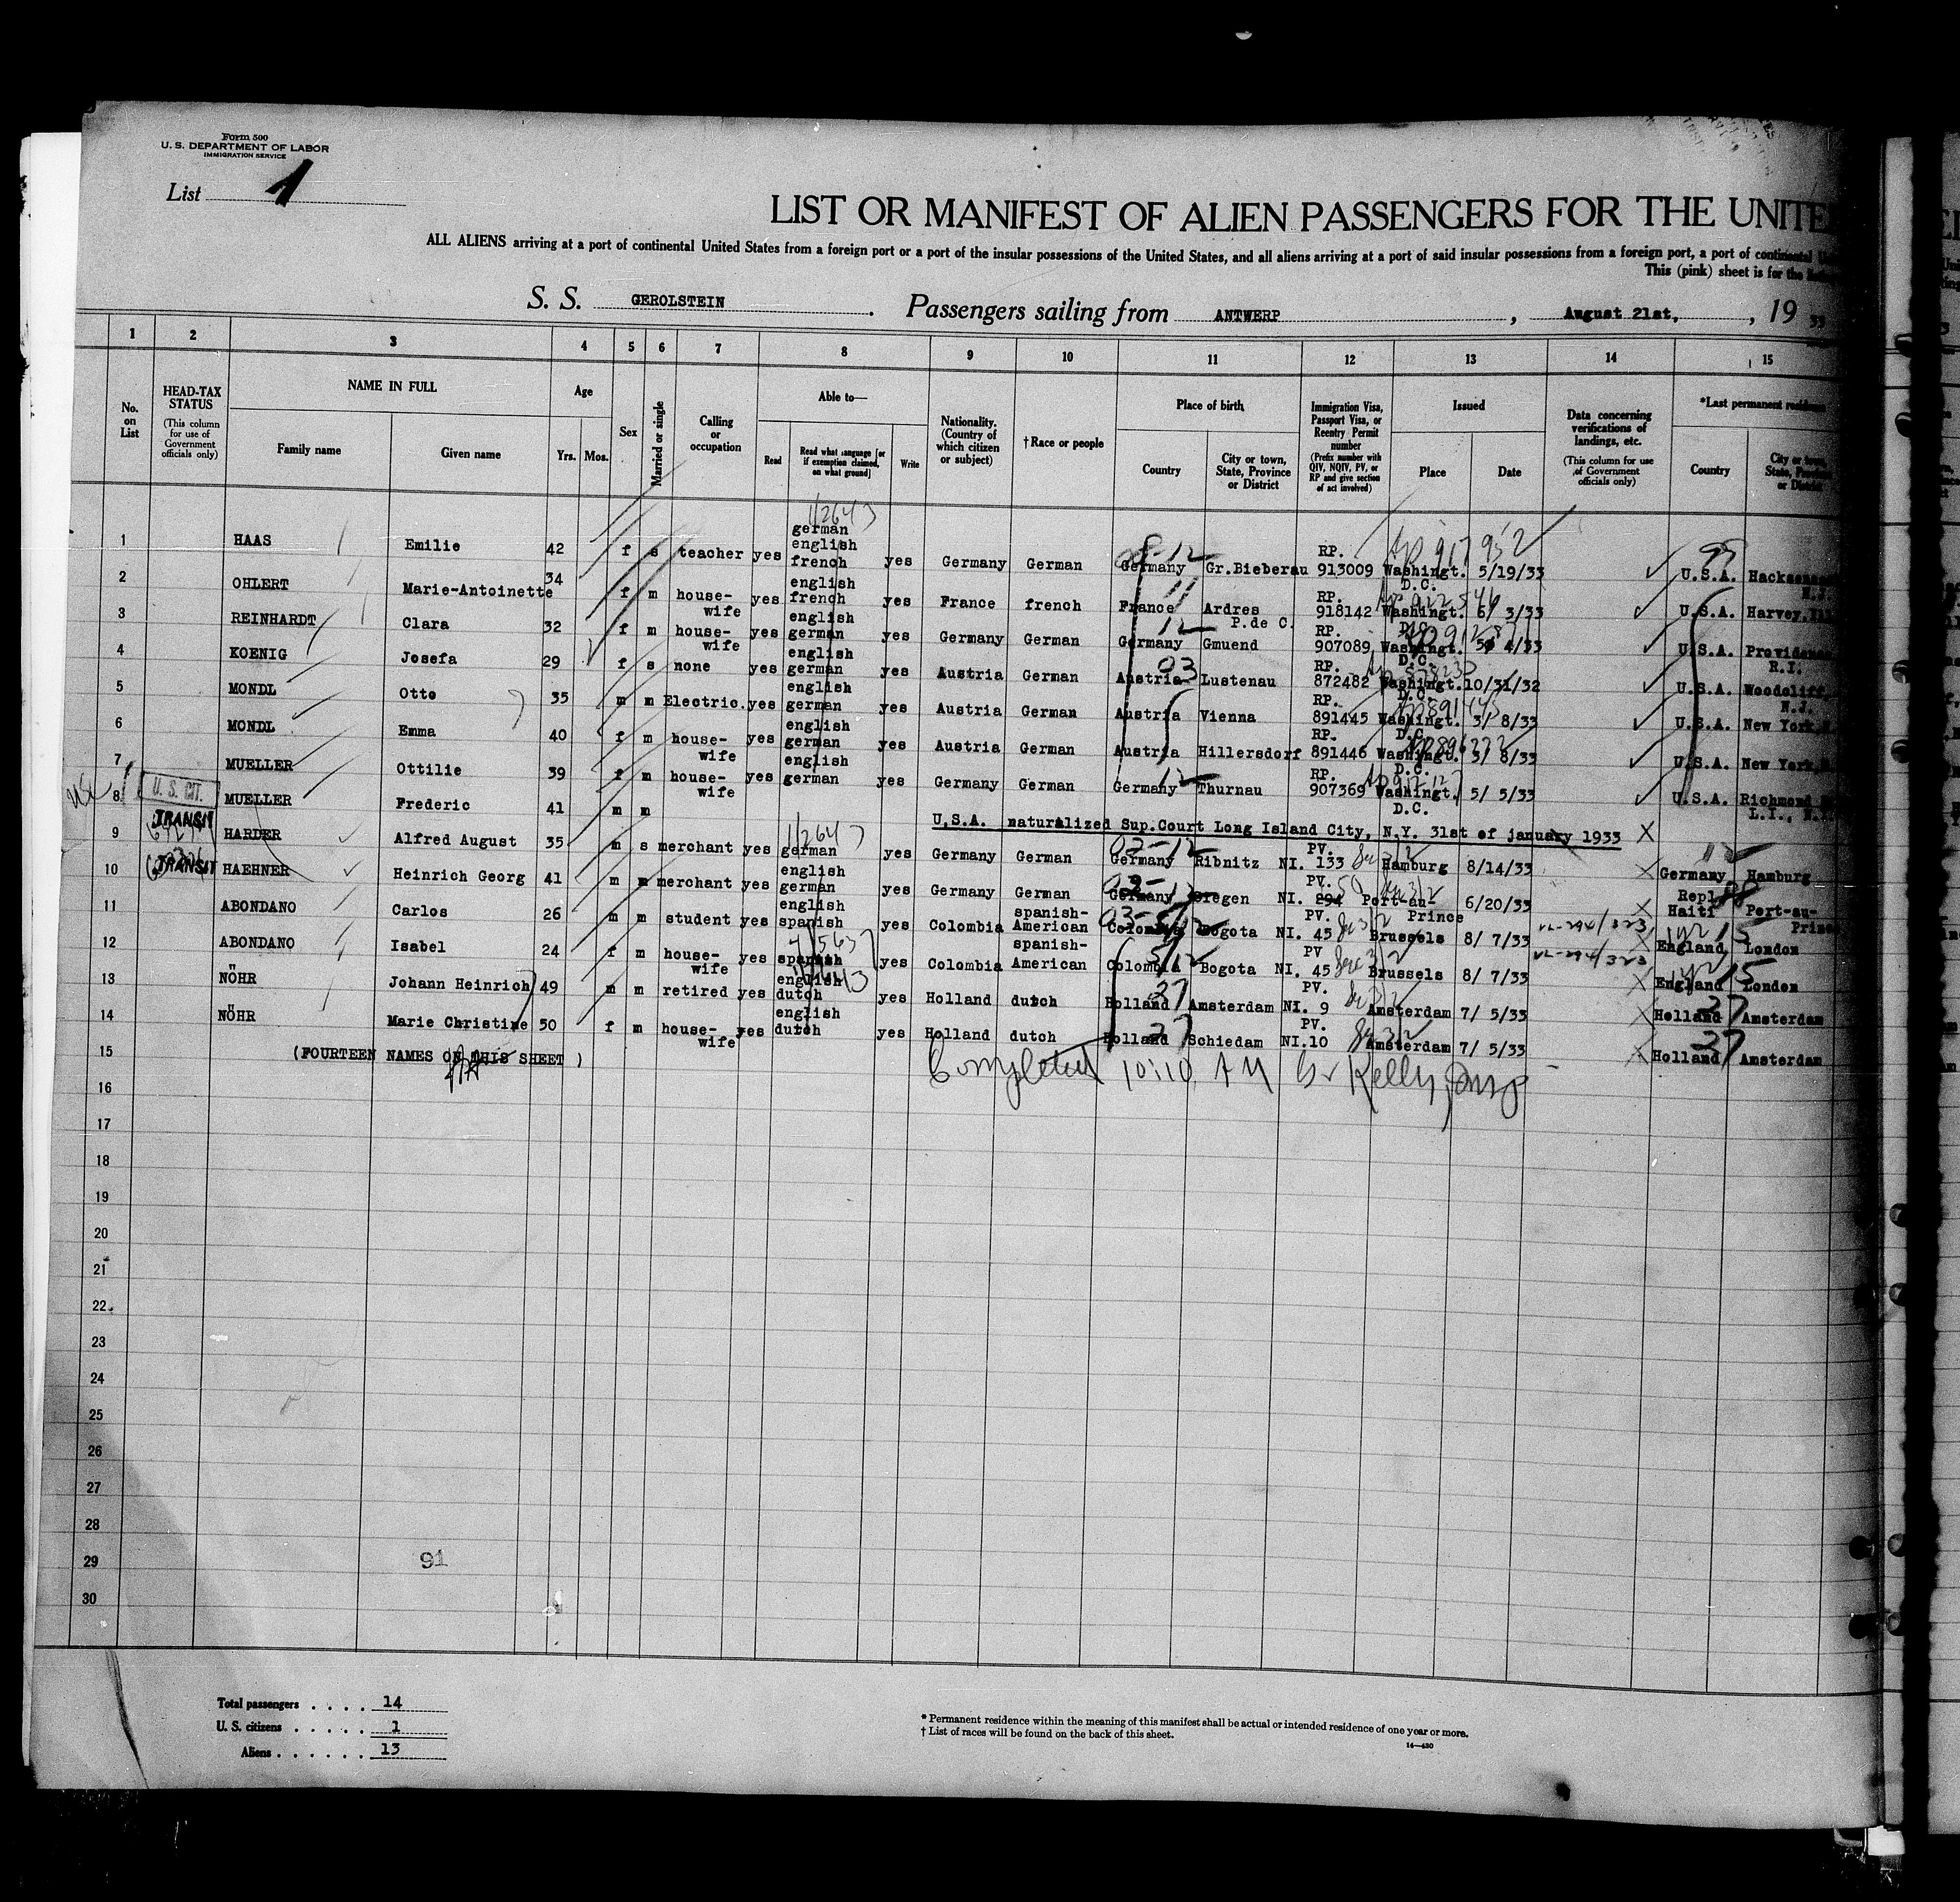 Form 500
U. S. DEPARTMENT OF LABOR
IMMIGRATION SERVICE
List 1
LIST OR MANIFEST OF ALIEN PASSENGERS FOR THE UNITE
ALL ALIENS arriving at a port of continental United States from a foreign port or a port of the insular possessions of the United States, and all aliens arriving at a port of said insular possessions from a foreign port, a port of continental
This (pink) sheet is for the
S. S. GEROLSTEIN. Passengers sailing from ANTWERP, August 21st, , 19 33
1 2 3 4 5 6 7 8 9 10 11 12 13 14 15
No. on List
HEAD-TAX STATUS (This column for use of Government officials only)
NAME IN FULL
Family name Given name
Age
Yrs. Mos.
Sex
Married or single
Calling or occupation
Able to—
Read Read what language [or if exemption claimed, on what ground] Write
Nationality. (Country of which citizen or subject)
†Race or people
Place of birth
Country City or town, State, Province or District
Immigration Visa, Passport Visa, or Reentry Permit number (Prefix number with QIV, NQIV, PV, or RP and give section of act involved)
Issued
Place Date
Data concerning verifications of landings, etc. (This column for use of Government officials only)
*Last permanent residence
Country City or town, State, Province or District
1 HAAS Emilie 42 f s teacher yes german english french yes Germany German Germany Gr.Bieberau RP. 913009 Washingt. D.C. 5/19/33 U.S.A. Hackensa N.J.
2 OHLERT Marie-Antoinette 34 f m house-wife yes english french yes France french France Ardres P.de C. RP. 918142 Washingt. D.C. 6/ 3/33 U.S.A. Harvey,
3 REINHARDT Clara 32 f m house-wife yes english german yes Germany German Germany Gmuend RP. 907089 Washingt. D.C. 5/ 4/33 U.S.A. Providence R.I.
4 KOENIG Josefa 29 f s none yes english german yes Austria German Austria Lustenau RP. 872482 Washingt. D.C. 10/31/32 U.S.A. Woodcliff N.J.
5 MONDL Otto 35 m m Electric. yes english german yes Austria German Austria Vienna RP. 891445 Washingt. D.C. 3/ 8/33 U.S.A. New York,
6 MONDL Emma 40 f m house-wife yes english german yes Austria German Austria Hillersdorf RP. 891446 Washingt. D.C. 3/ 8/33 U.S.A. New York,
7 MUELLER Ottilie 39 f m house-wife yes english german yes Germany German Germany Thurnau RP. 907369 Washingt. D.C. 5/ 5/33 U.S.A. Richmond L.I., N.Y.
8 U. S. CIT. MUELLER Frederic 41 m m U.S.A. naturalized Sup.Court Long Island City, N.Y. 31st of january 1933 X
9 TRANSIT HARDER Alfred August 35 m s merchant yes german yes Germany German Germany Ribnitz PV. NI. 133 Hamburg 8/14/33 X Germany Hamburg
10 TRANSIT HAEHNER Heinrich Georg 41 m m merchant yes english german yes Germany German Germany Siegen PV. NI. 294 Port-au-Prince 6/20/33 X Repl. Haiti Port-au-Prince
11 ABONDANO Carlos 26 m m student yes english spanish yes Colombia spanish-American Colombia Bogota PV. NI. 45 Brussels 8/ 7/33 X England London
12 ABONDANO Isabel 24 f m house-wife yes spanish yes Colombia spanish-American Colombia Bogota PV NI. 45 Brussels 8/ 7/33 X England London
13 NÖHR Johann Heinrich 49 m m retired yes english dutch yes Holland dutch Holland Amsterdam PV. NI. 9 Amsterdam 7/ 5/33 X Holland Amsterdam
14 NÖHR Marie Christine 50 f m house-wife yes english dutch yes Holland dutch Holland Schiedam PV. NI.10 Amsterdam 7/ 5/33 X Holland Amsterdam
15 (FOURTEEN NAMES ON THIS SHEET )
Completed 10:10 AM Kelly
16
17
18
19
20
21
22
23
24
25
26
27
28
29
91
30
Total passengers . . . . 14
U. S. citizens . . . . . 1
Aliens . . . . . . 13
* Permanent residence within the meaning of this manifest shall be actual or intended residence of one year or more.
† List of races will be found on the back of this sheet.
14—430